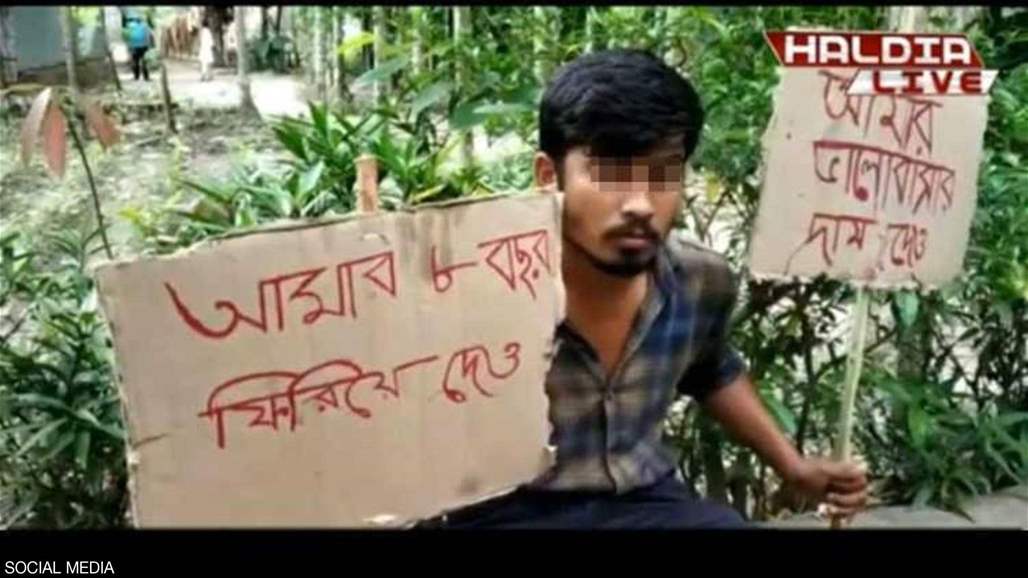 HALDIA
LIVE
আমার
ভালোবাসার
দাম দেও
আমার ৮ বছর
ফিরিয়ে দেও
SOCIAL MEDIA